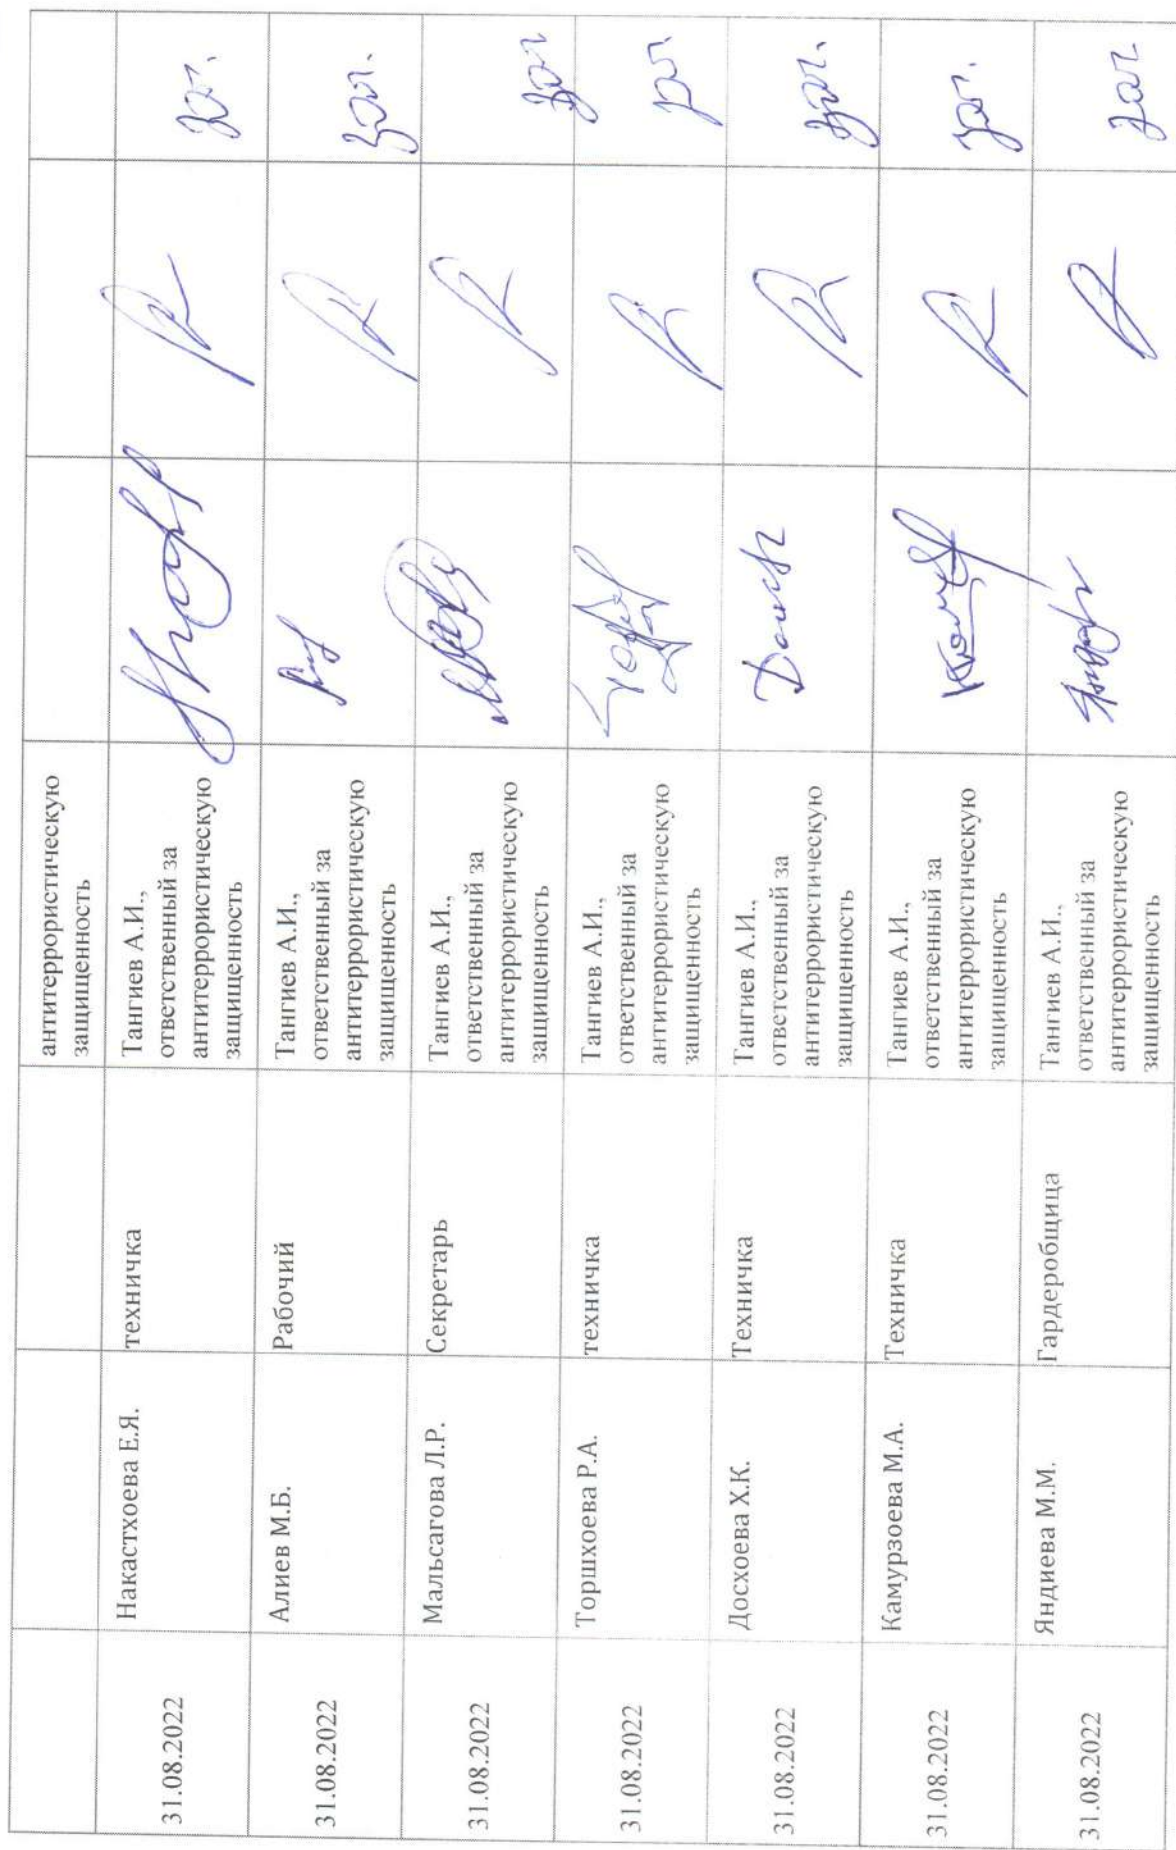 антитеррористическую
защищенность
31.08.2022 Накастхоева Е.Я. техничка Тангиев А.И.,
ответственный за
антитеррористическую
защищенность
зач.
31.08.2022 Алиев М.Б. Рабочий Тангиев А.И.,
ответственный за
антитеррористическую
защищенность
зач.
31.08.2022 Мальсагова Л.Р. Секретарь Тангиев А.И.,
ответственный за
антитеррористическую
защищенность
зач
31.08.2022 Торшхоева Р.А. техничка Тангиев А.И.,
ответственный за
антитеррористическую
защищенность
зач.
31.08.2022 Досхоева Х.К. Техничка Тангиев А.И.,
ответственный за
антитеррористическую
защищенность
зач.
31.08.2022 Камурзоева М.А. Техничка Тангиев А.И.,
ответственный за
антитеррористическую
защищенность
зач.
31.08.2022 Яндиева М.М. Гардеробщица Тангиев А.И.,
ответственный за
антитеррористическую
защищенность
зач